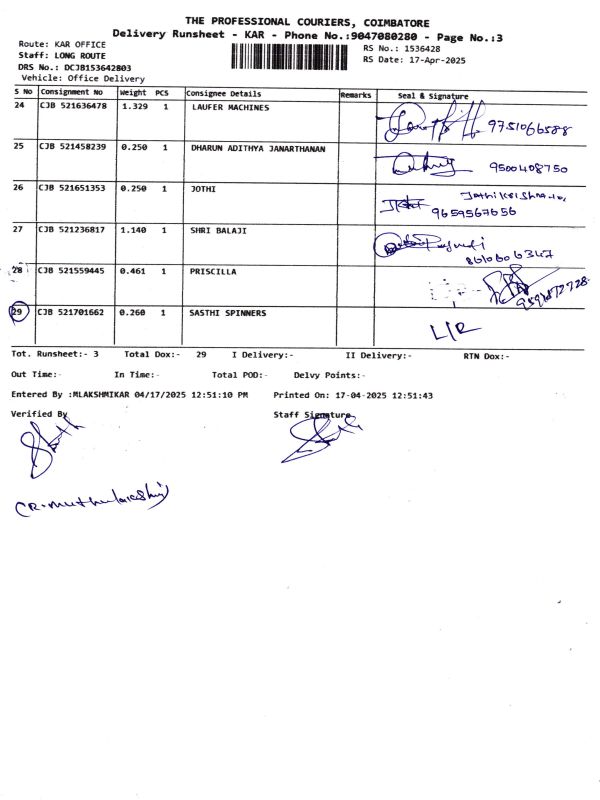 THE PROFESSIONAL COURIERS, COIMBATORE
Delivery Runsheet - KAR - Phone No.:9047080280 - Page No.:3
Route: KAR OFFICE
RS No.: 1536428
Staff: LONG ROUTE
RS Date: 17-Apr-2025
DRS No.: DCJB153642803
Vehicle: Office Delivery
S No Consignment No Weight PCS Consignee Details Remarks Seal & Signature
24 CJB 521636478 1.329 1 LAUFER MACHINES 9751066588
25 CJB 521458239 0.250 1 DHARUN ADITHYA JANARTHANAN 9500408750
26 CJB 521651353 0.250 1 JOTHI 9659567656
27 CJB 521236817 1.140 1 SHRI BALAJI 8610606347
28 CJB 521559445 0.461 1 PRISCILLA
29 CJB 521701662 0.260 1 SASTHI SPINNERS L/R
Tot. Runsheet:- 3 Total Dox:- 29 I Delivery:- II Delivery:- RTN Dox:-
Out Time:- In Time:- Total POD:- Delvy Points:-
Entered By :MLAKSHMIKAR 04/17/2025 12:51:10 PM Printed On: 17-04-2025 12:51:43
Verified By Staff Signature